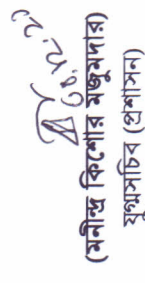 (মনীন্দ্র কিশোর মজুমদার)
যুগ্মসচিব (প্রশাসন)